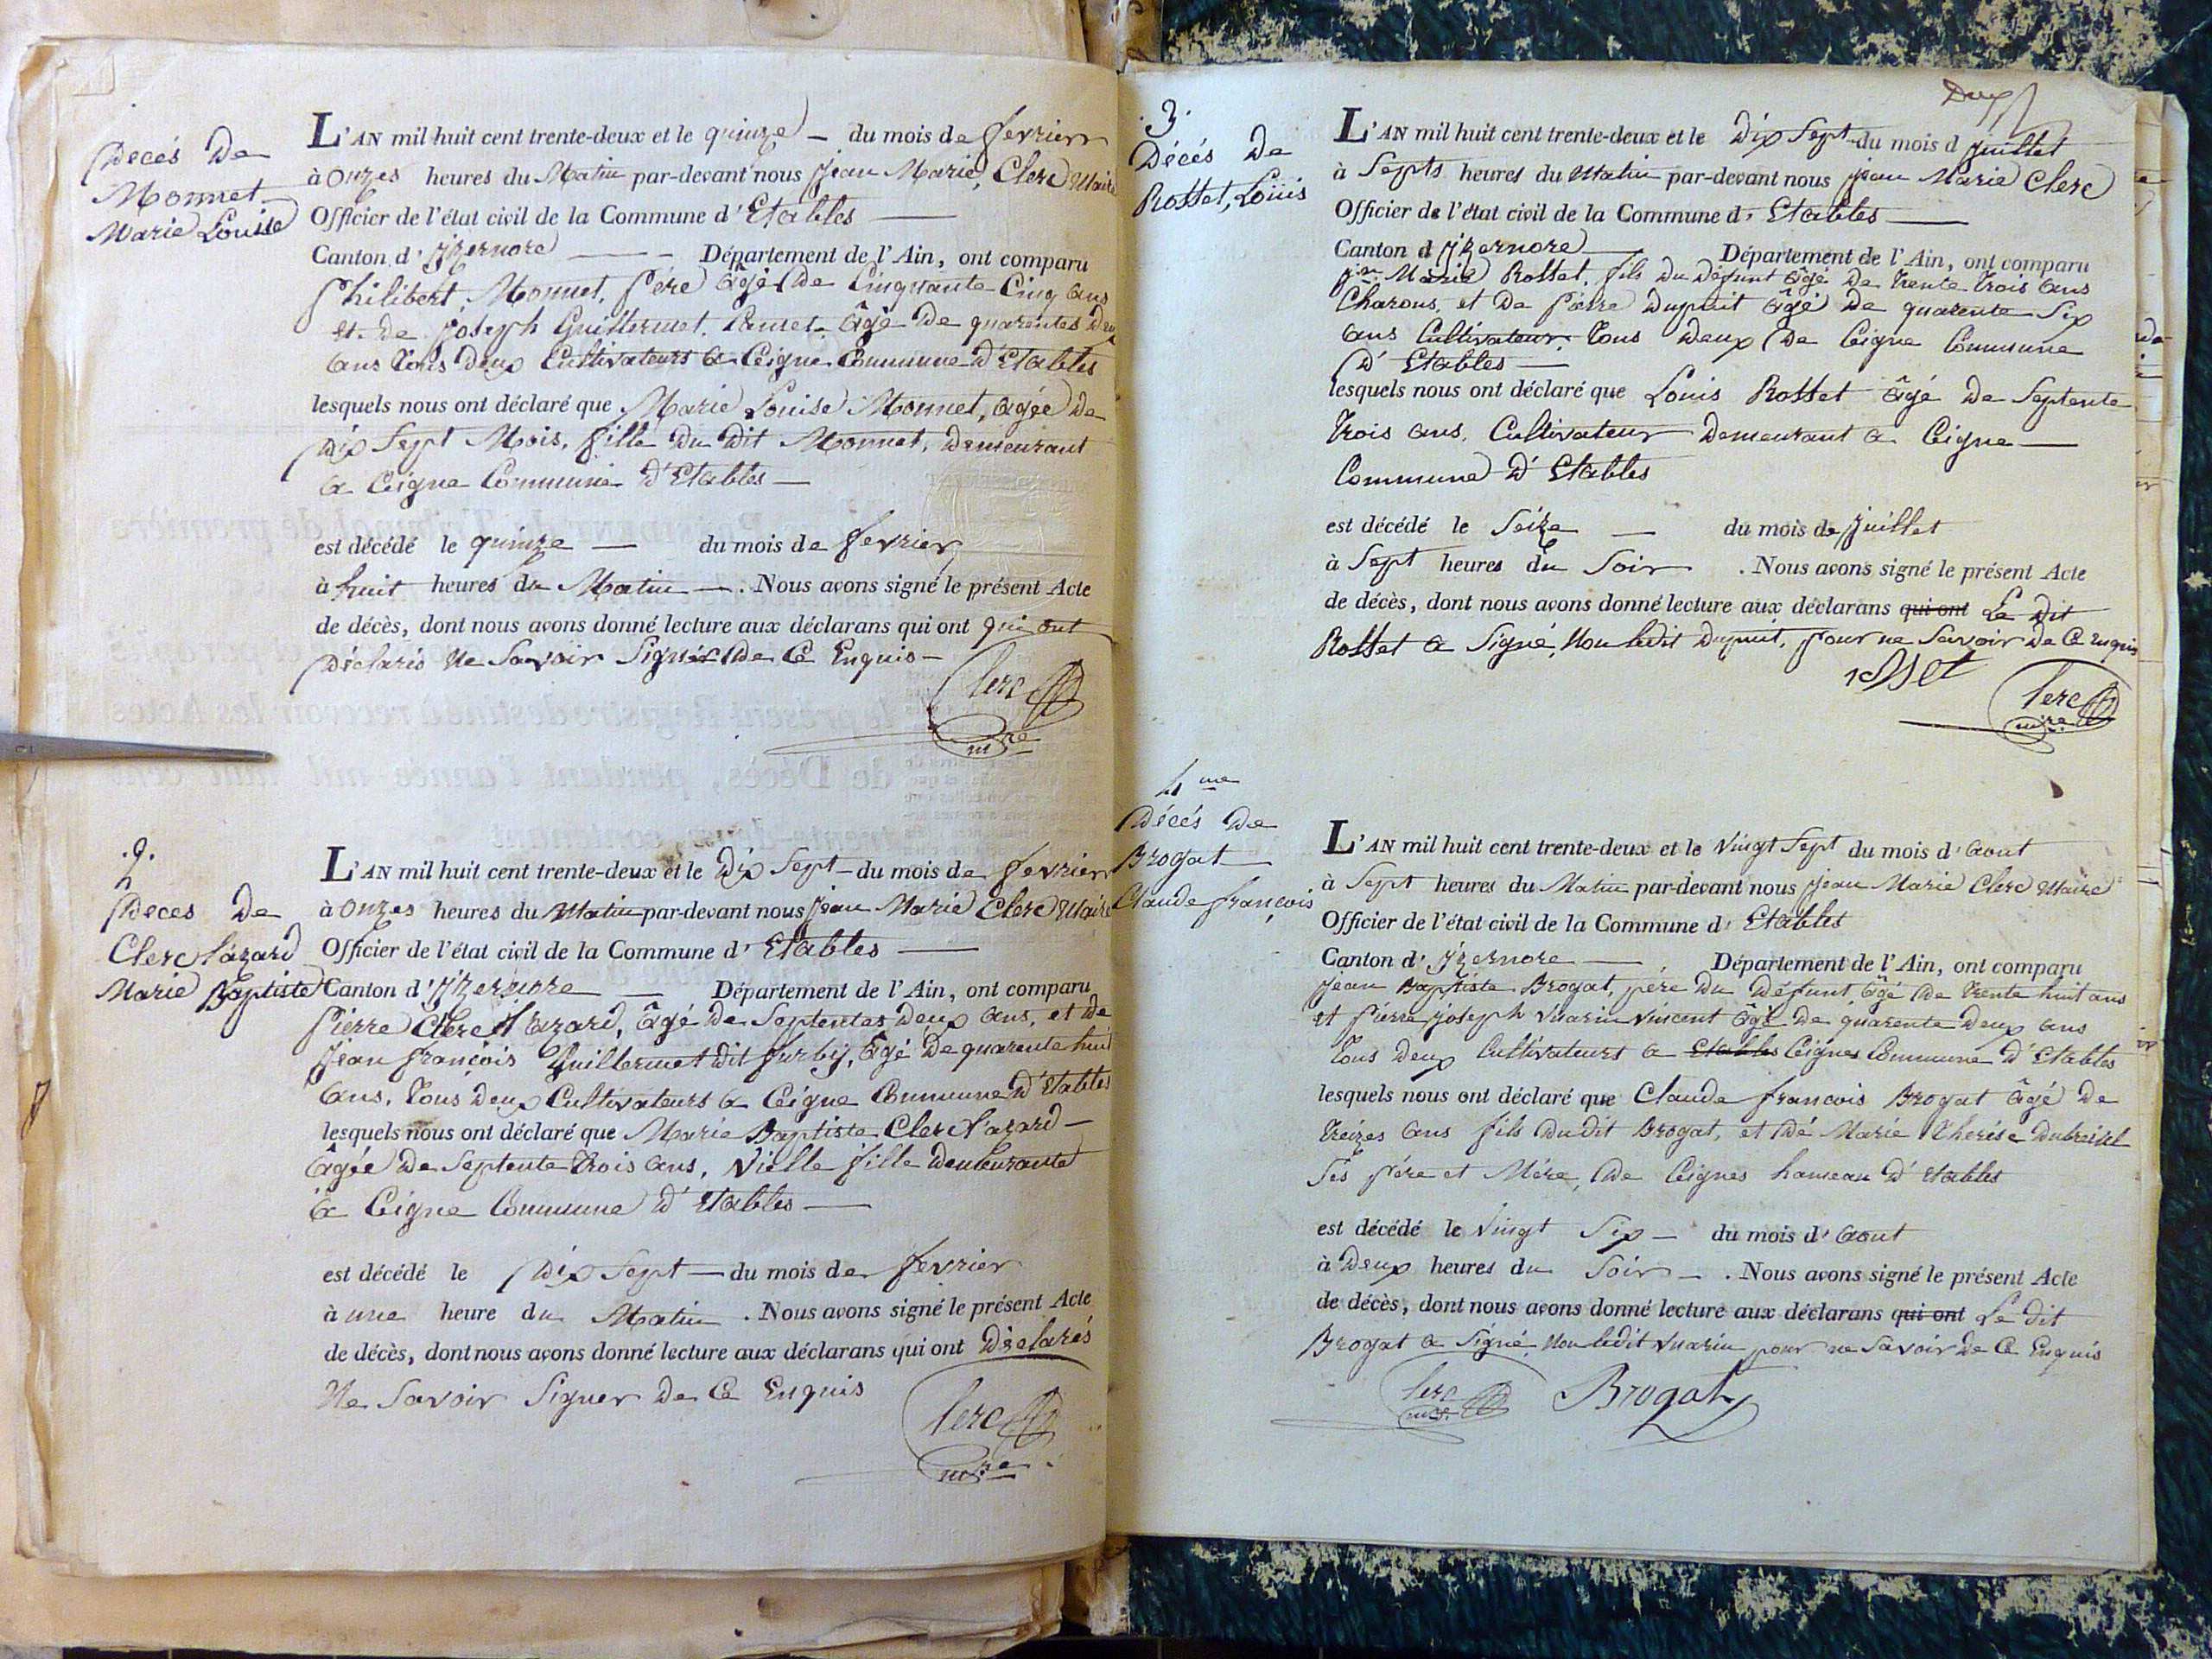 Décès de
Monnet
Marie Louise
L'AN mil huit cent trente-deux et le quinze — du mois de fevrier
à Onzes heures du Matin par-devant nous Jean Marie Clerc Maire
Officier de l'état civil de la Commune d' Etables —
Canton d' Izernore — Département de l'Ain, ont comparu
Philibert Monnet, Père âgé de Cinquante Cinq ans
et de Joseph Guillermet âgé de quarentes deux
ans tous deux Cultivateurs a Ceigne Commune d'Etables
lesquels nous ont déclaré que Marie Louise Monnet, agée de
Dix Sept Mois, fille du dit Monnet, demeurant
a Ceigne Commune d'Etables —
est décédé le quinze — du mois de fevrier
à huit heures du Matin —. Nous avons signé le présent Acte
de décès, dont nous avons donné lecture aux déclarans qui ont qui ont
Déclarés Ne Savoir Signer de Ce Enquis —
Clerc
mre
2.
Deces de
Clerc Lazard
Marie Baptiste
L'AN mil huit cent trente-deux et le Dix Sept — du mois de fevrier
à Onzes heures du Matin par-devant nous Jean Marie Clerc Maire
Officier de l'état civil de la Commune d' Etables —
Canton d' Izernore — Département de l'Ain, ont comparu
Pierre Clerc Lazard, âgé de Septentes deux ans, et de
Jean françois Guillermet dit furbij, âgé de quarente huit
ans, tous deux Cultivateurs a Ceigne Commune d'Etables
lesquels nous ont déclaré que Marie Baptiste Clerc Lazard —
âgée de Septente trois ans, Vielle fille demeurante
a Ceigne Commune d'Etables —
est décédé le Dix Sept — du mois de fevrier
à une heure du Matin. Nous avons signé le présent Acte
de décès, dont nous avons donné lecture aux déclarans qui ont Déclarés
Ne Savoir Signer de Ce Enquis
Clerc
mre
Deux
3.
Décés de
Rosset, Louis
L'AN mil huit cent trente-deux et le Dix Sept du mois d Juillet
à Septs heures du Matin par-devant nous Jean Marie Clerc
Officier de l'état civil de la Commune d' Etables —
Canton d Izernore — Département de l'Ain, ont comparu
Jn Marie Rosset, fils du Défunt âgé de trente trois ans
Charons, et de Pierre Dupuit âgé de quarente Six
ans Cultivateur, tous deux de Ceigne Commune
d'Etables —
lesquels nous ont déclaré que Louis Rosset âgé de Septente
trois ans, Cultivateur Demeurant a Ceigne —
Commune d'Etables
est décédé le Seize — du mois de Juillet
à Sept heures du Soir. Nous avons signé le présent Acte
de décès, dont nous avons donné lecture aux déclarans qui ont Le dit
Rosset a Signé, Non ledit Dupuit, pour ne Savoir de Ce enquis
rosset
Clerc
mre
4me
Décés de
Brogat
Claude françois
L'AN mil huit cent trente-deux et le Vingt Sept du mois d' Aout
à Sept heures du Matin par-devant nous Jean Marie Clerc Maire
Officier de l'état civil de la Commune d' Etables
Canton d' Izernore — Département de l'Ain, ont comparu
Jean Baptiste Brogat, père du Défunt, âgé de trente huit ans
et Pierre joseph Vuarin Vincent âgé de quarente deux ans
tous deux Cultivateurs a Etables Ceignes Commune d'Etables
lesquels nous ont déclaré que Claude francois Brogat âgé de
treizes ans fils dudit Brogat, et de Marie Therése
Ses Père et Mére, de Ceignes hameau d'Etables
est décédé le Vingt Six — du mois d' Aout
à Deux heures du Soir —. Nous avons signé le présent Acte
de décès, dont nous avons donné lecture aux déclarans qui ont Le dit
Brogat a Signé, Non ledit Vuarin pour ne Savoir de Ce Enquis
Clerc
mre
Brogat